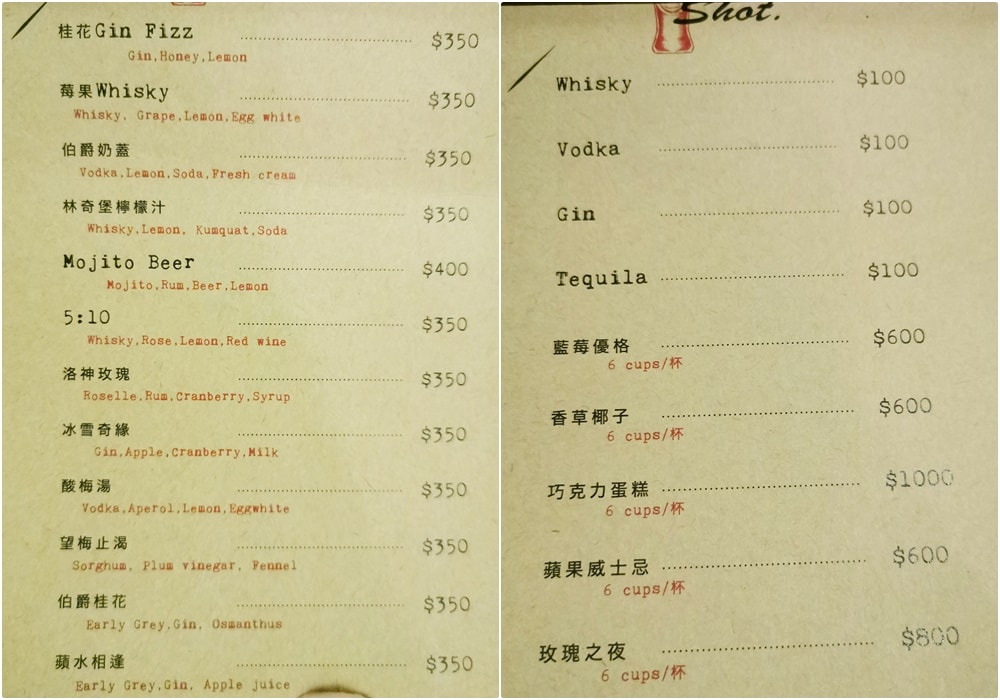 桂花Gin Fizz $350
Gin,Honey,Lemon
莓果Whisky $350
Whisky, Grape,Lemon,Egg white
伯爵奶蓋 $350
Vodka,Lemon,Soda,Fresh cream
林奇堡檸檬汁 $350
Whisky,Lemon, Kumquat,Soda
Mojito Beer $400
Mojito,Rum,Beer,Lemon
5:10 $350
Whisky,Rose,Lemon,Red wine
洛神玫瑰 $350
Roselle,Rum,Cranberry,Syrup
冰雪奇緣 $350
Gin,Apple,Cranberry,Milk
酸梅湯 $350
Vodka,Aperol,Lemon,Eggwhite
望梅止渴 $350
Sorghum, Plum vinegar, Fennel
伯爵桂花 $350
Early Grey,Gin, Osmanthus
蘋水相逢 $350
Early Grey,Gin, Apple juice
Shot.
Whisky $100
Vodka $100
Gin $100
Tequila $100
藍莓優格 $600
6 cups/杯
香草椰子 $600
6 cups/杯
巧克力蛋糕 $1000
6 cups/杯
蘋果威士忌 $600
6 cups/杯
玫瑰之夜 $800
6 cups/杯